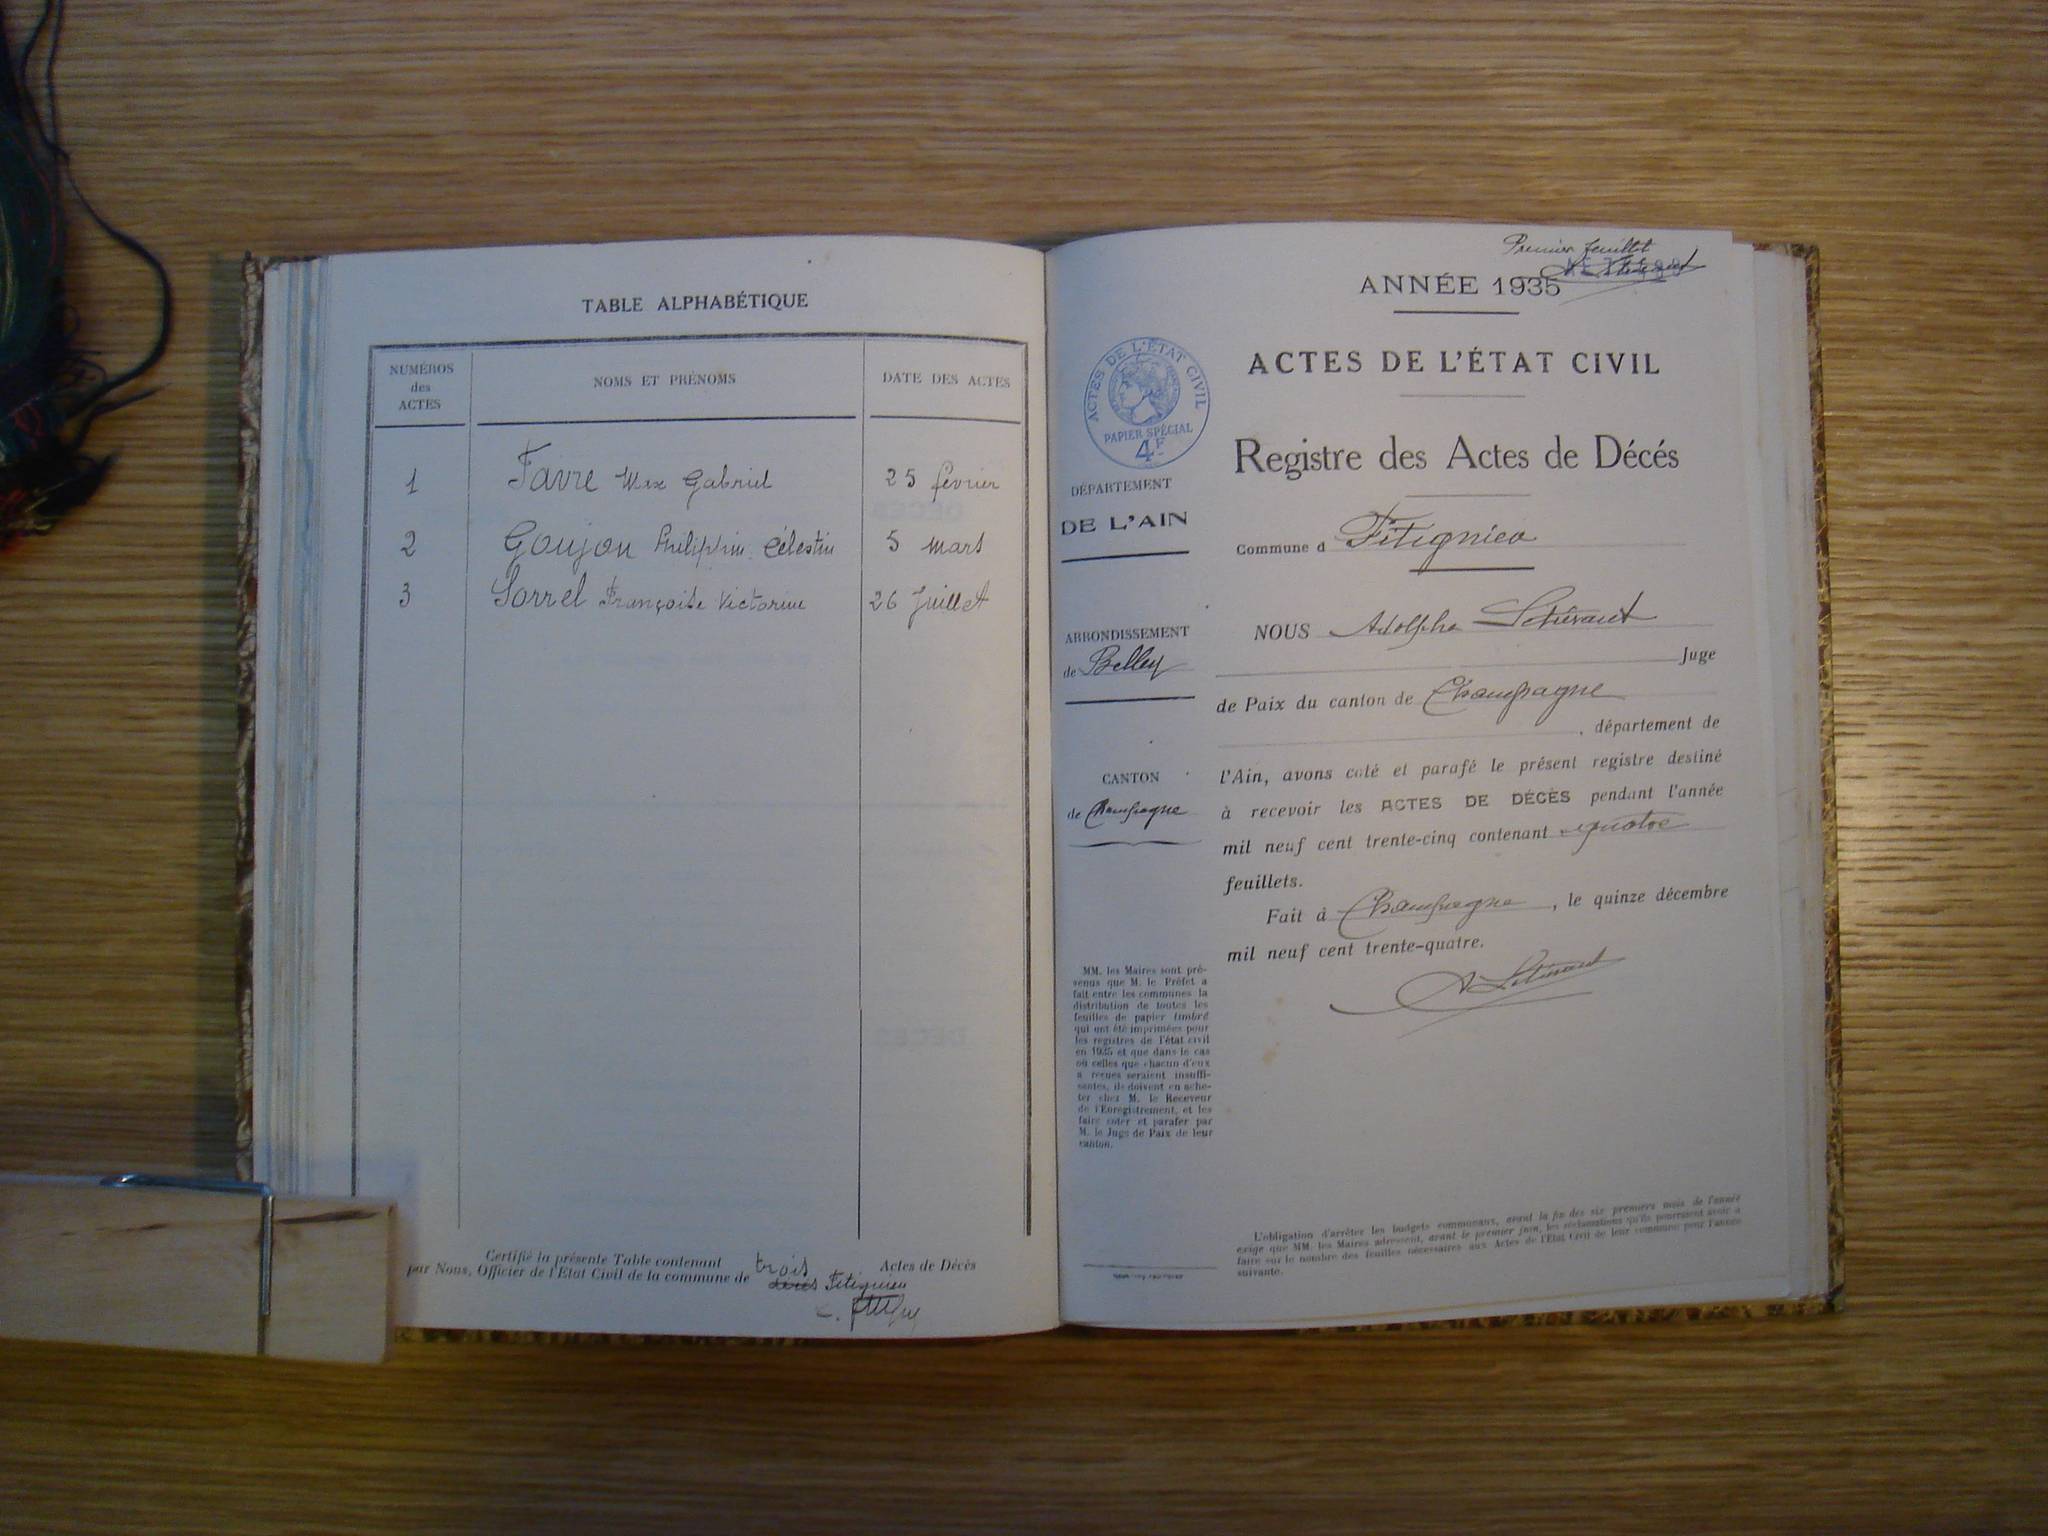 TABLE ALPHABÉTIQUE
NUMÉROS
des
ACTES
NOMS ET PRÉNOMS
DATE DES ACTES
1 Favre Max Gabriel 25 février
2 Goujon Philippin Célestin 5 mars
3 Sorrel Françoise Victorine 26 Juillet
Certifié la présente Table contenant trois Actes de Décès
par Nous, Officier de l'Etat Civil de la commune de Fitignieu
Premier feuillet
ANNÉE 1935
ACTES DE L'ÉTAT CIVIL
PAPIER SPÉCIAL
4F
ACTES DE L'ÉTAT CIVIL
Registre des Actes de Décés
DÉPARTEMENT
DE L'AIN
Commune d Fitignieu
ARRONDISSEMENT
de Belley
CANTON
de Champagne
NOUS Adolphe
Juge
de Paix du canton de Champagne
, département de
l'Ain, avons coté et parafé le présent registre destiné
à recevoir les ACTES DE DÉCÈS pendant l'année
mil neuf cent trente-cinq contenant quatre
feuillets.
Fait à Champagne, le quinze décembre
mil neuf cent trente-quatre.
MM. les Maires sont pré-
venus que M. le Préfet a
fait entre les communes la
distribution de toutes les
feuilles de papier timbré
qui ont été imprimées pour
les registres de l'état civil
en 1935 et que dans le cas
où celles que chacun d'eux
a reçues seraient insuffi-
santes, ils doivent en ache-
ter chez M. le Receveur
de l'Enregistrement, et les
faire coter et parafer par
M. le Juge de Paix de leur
canton.
L'obligation d'arrêter les budgets communaux, avant la fin des six premiers mois de l'année
exige que MM. les Maires adressent, avant le premier juin, les réclamations qu'ils pourraient avoir à
faire sur le nombre des feuilles nécessaires aux Actes de l'Etat Civil de leur commune pour l'année
suivante.